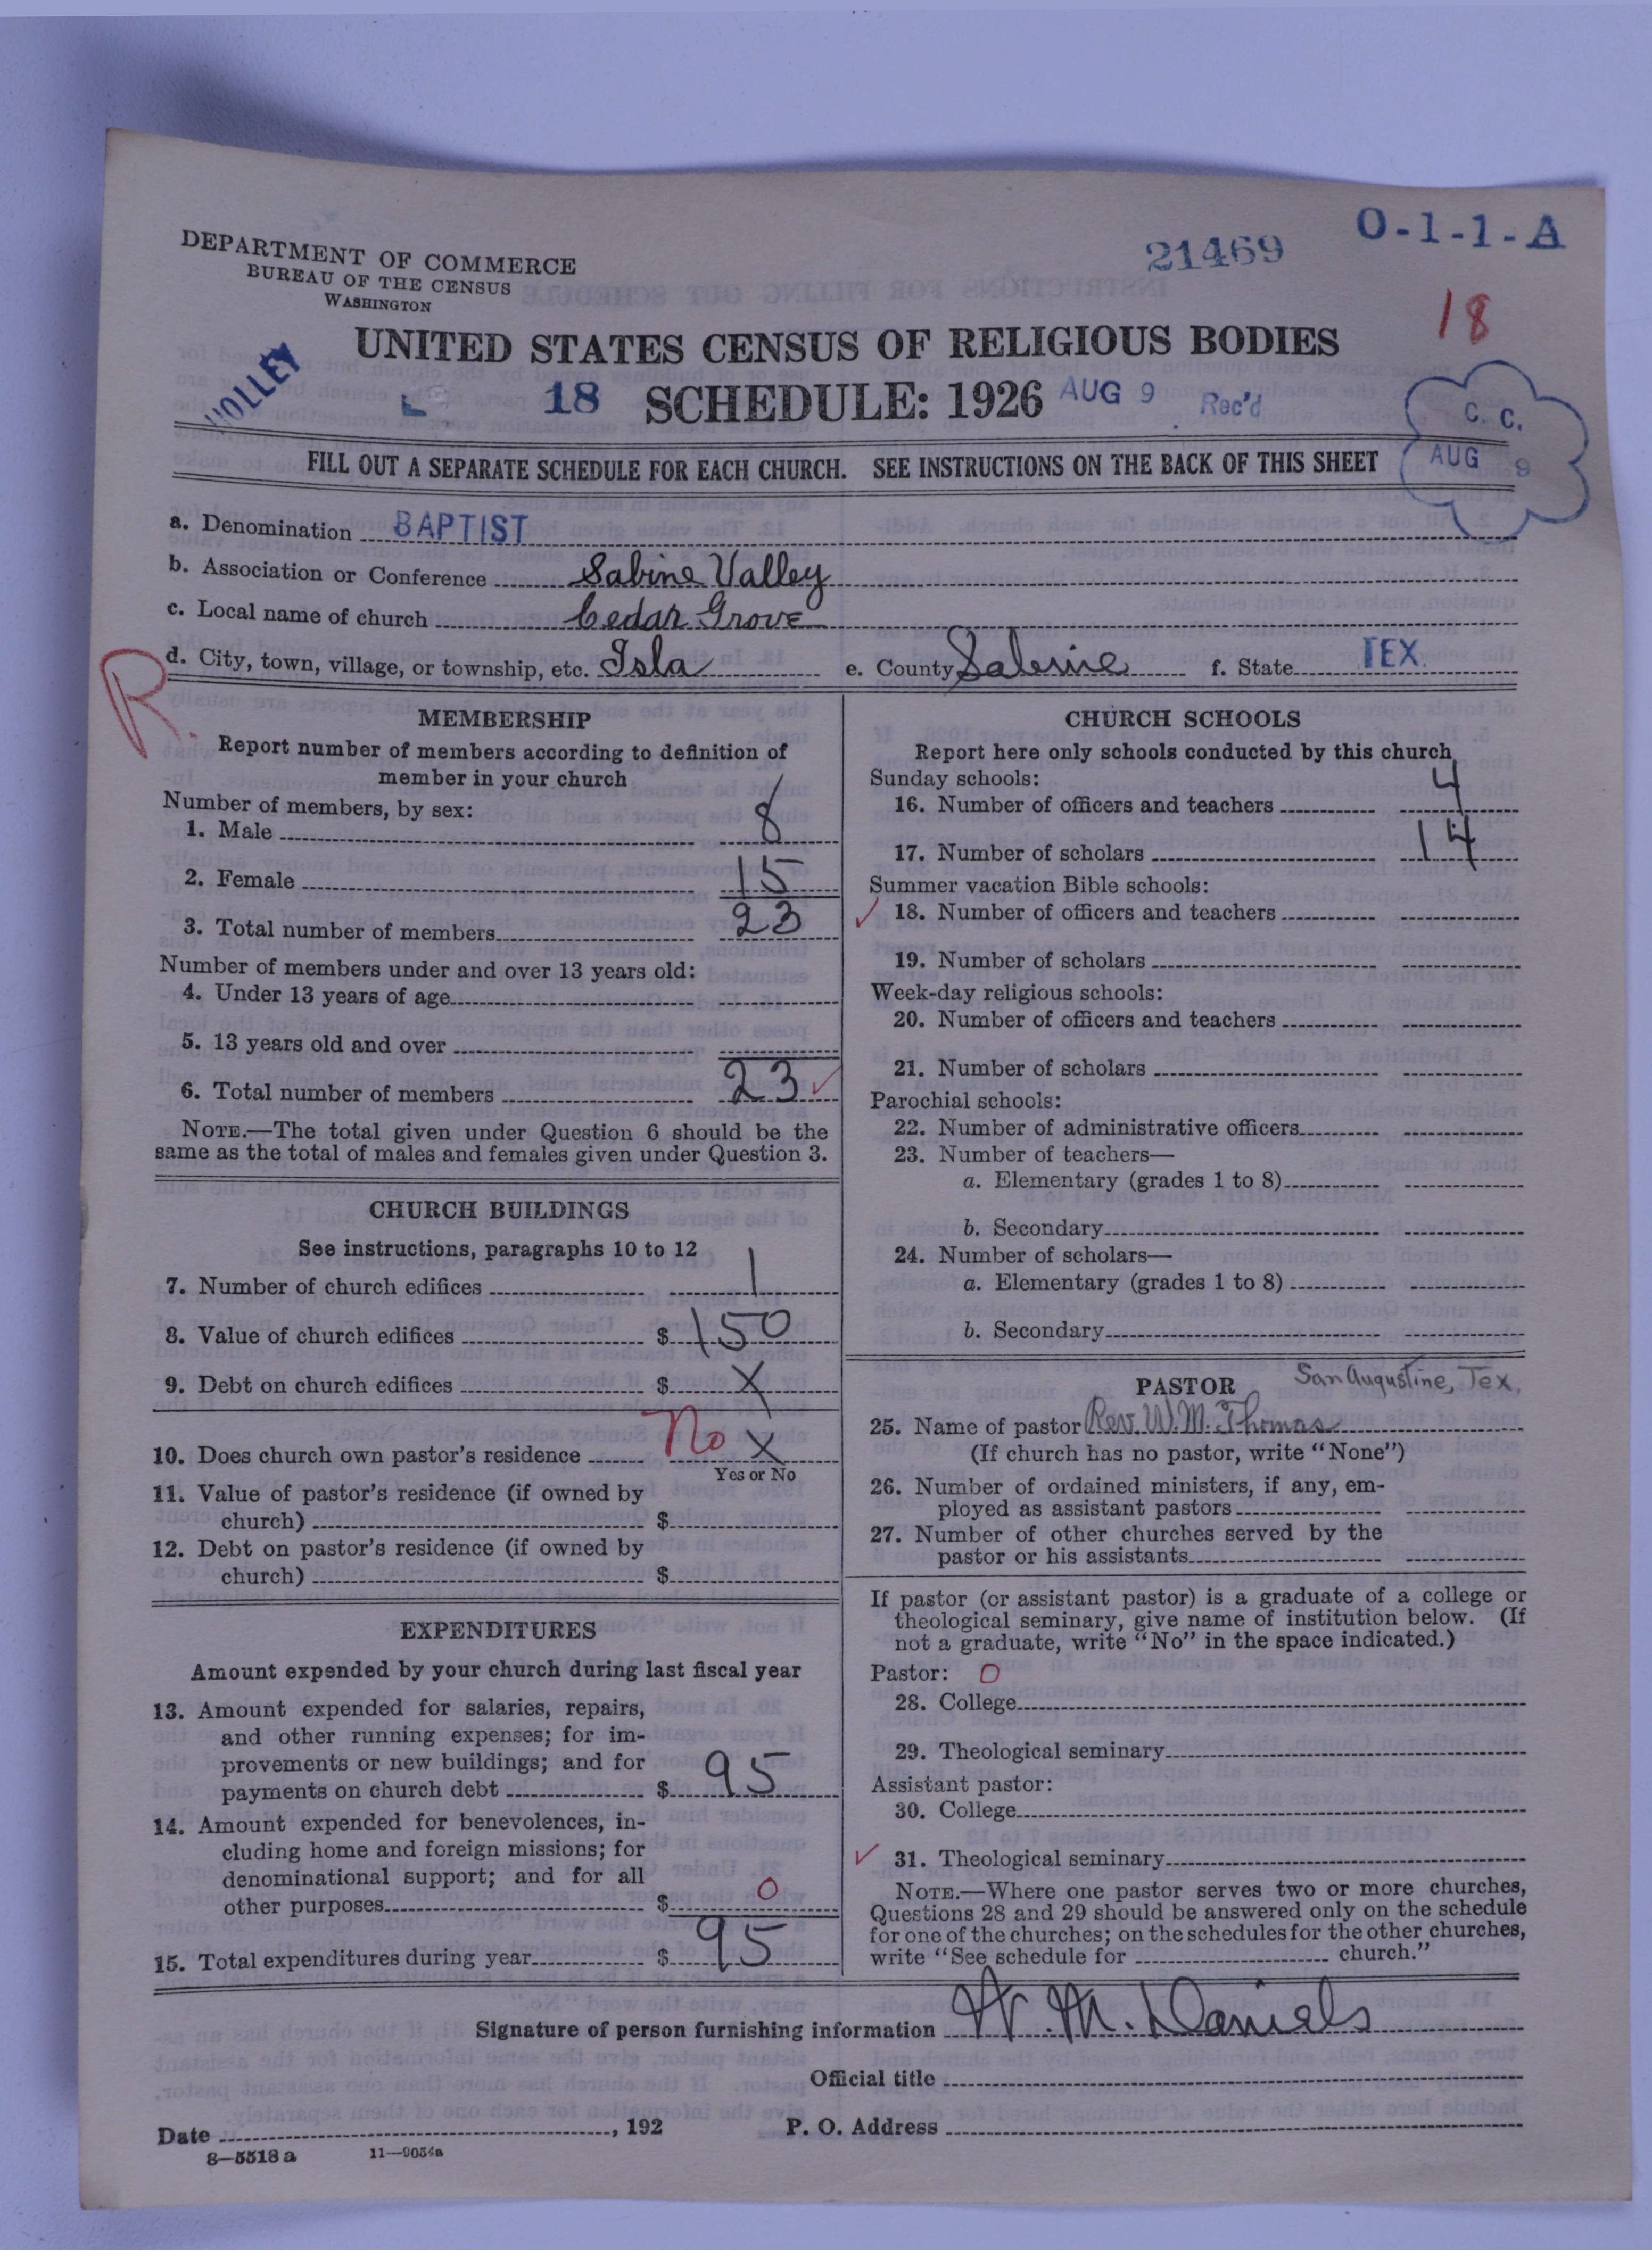 O-1-1-A
21469
DEPARTMENT OF COMMERCE
BUREAU OF THE CENSUS
WASHINGTON
18
UNITED STATES CENSUS OF RELIGIOUS BODIES
HOLLEY
18 SCHEDULE: 1926 AUG 9 Rec'd
C. C.
AUG 9
FILL OUT A SEPARATE SCHEDULE FOR EACH CHURCH. SEE INSTRUCTIONS ON THE BACK OF THIS SHEET
a. Denomination BAPTIST
b. Association or Conference Sabine Valley
c. Local name of church Cedar Grove
d. City, town, village, or township, etc. Isla e. County Sabine f. State TEX.
R.
MEMBERSHIP
Report number of members according to definition of
member in your church
Number of members, by sex:
1. Male 8
2. Female 15
3. Total number of members 23
Number of members under and over 13 years old:
4. Under 13 years of age
5. 13 years old and over
6. Total number of members 23 ✓
NOTE.—The total given under Question 6 should be the
same as the total of males and females given under Question 3.
CHURCH BUILDINGS
See instructions, paragraphs 10 to 12
7. Number of church edifices 1
8. Value of church edifices $ 150
9. Debt on church edifices $ X
10. Does church own pastor's residence No X
Yes or No
11. Value of pastor's residence (if owned by
church) $
12. Debt on pastor's residence (if owned by
church) $
EXPENDITURES
Amount expended by your church during last fiscal year
13. Amount expended for salaries, repairs,
and other running expenses; for im-
provements or new buildings; and for
payments on church debt $ 95
14. Amount expended for benevolences, in-
cluding home and foreign missions; for
denominational support; and for all
other purposes $ 0
15. Total expenditures during year $ 95
CHURCH SCHOOLS
Report here only schools conducted by this church
Sunday schools:
16. Number of officers and teachers 4
17. Number of scholars 14
Summer vacation Bible schools:
✓ 18. Number of officers and teachers
19. Number of scholars
Week-day religious schools:
20. Number of officers and teachers
21. Number of scholars
Parochial schools:
22. Number of administrative officers
23. Number of teachers—
a. Elementary (grades 1 to 8)
b. Secondary
24. Number of scholars—
a. Elementary (grades 1 to 8)
b. Secondary
PASTOR San Augustine, Tex.
25. Name of pastor Rev. W. M. Thomas
(If church has no pastor, write "None")
26. Number of ordained ministers, if any, em-
ployed as assistant pastors
27. Number of other churches served by the
pastor or his assistants
If pastor (or assistant pastor) is a graduate of a college or
theological seminary, give name of institution below. (If
not a graduate, write "No" in the space indicated.)
Pastor: 0
28. College
29. Theological seminary
Assistant pastor:
30. College
✓ 31. Theological seminary
NOTE.—Where one pastor serves two or more churches,
Questions 28 and 29 should be answered only on the schedule
for one of the churches; on the schedules for the other churches,
write "See schedule for church."
Signature of person furnishing information W. M. Daniels
Official title
Date , 192 P. O. Address
8—5518 a 11—9054a